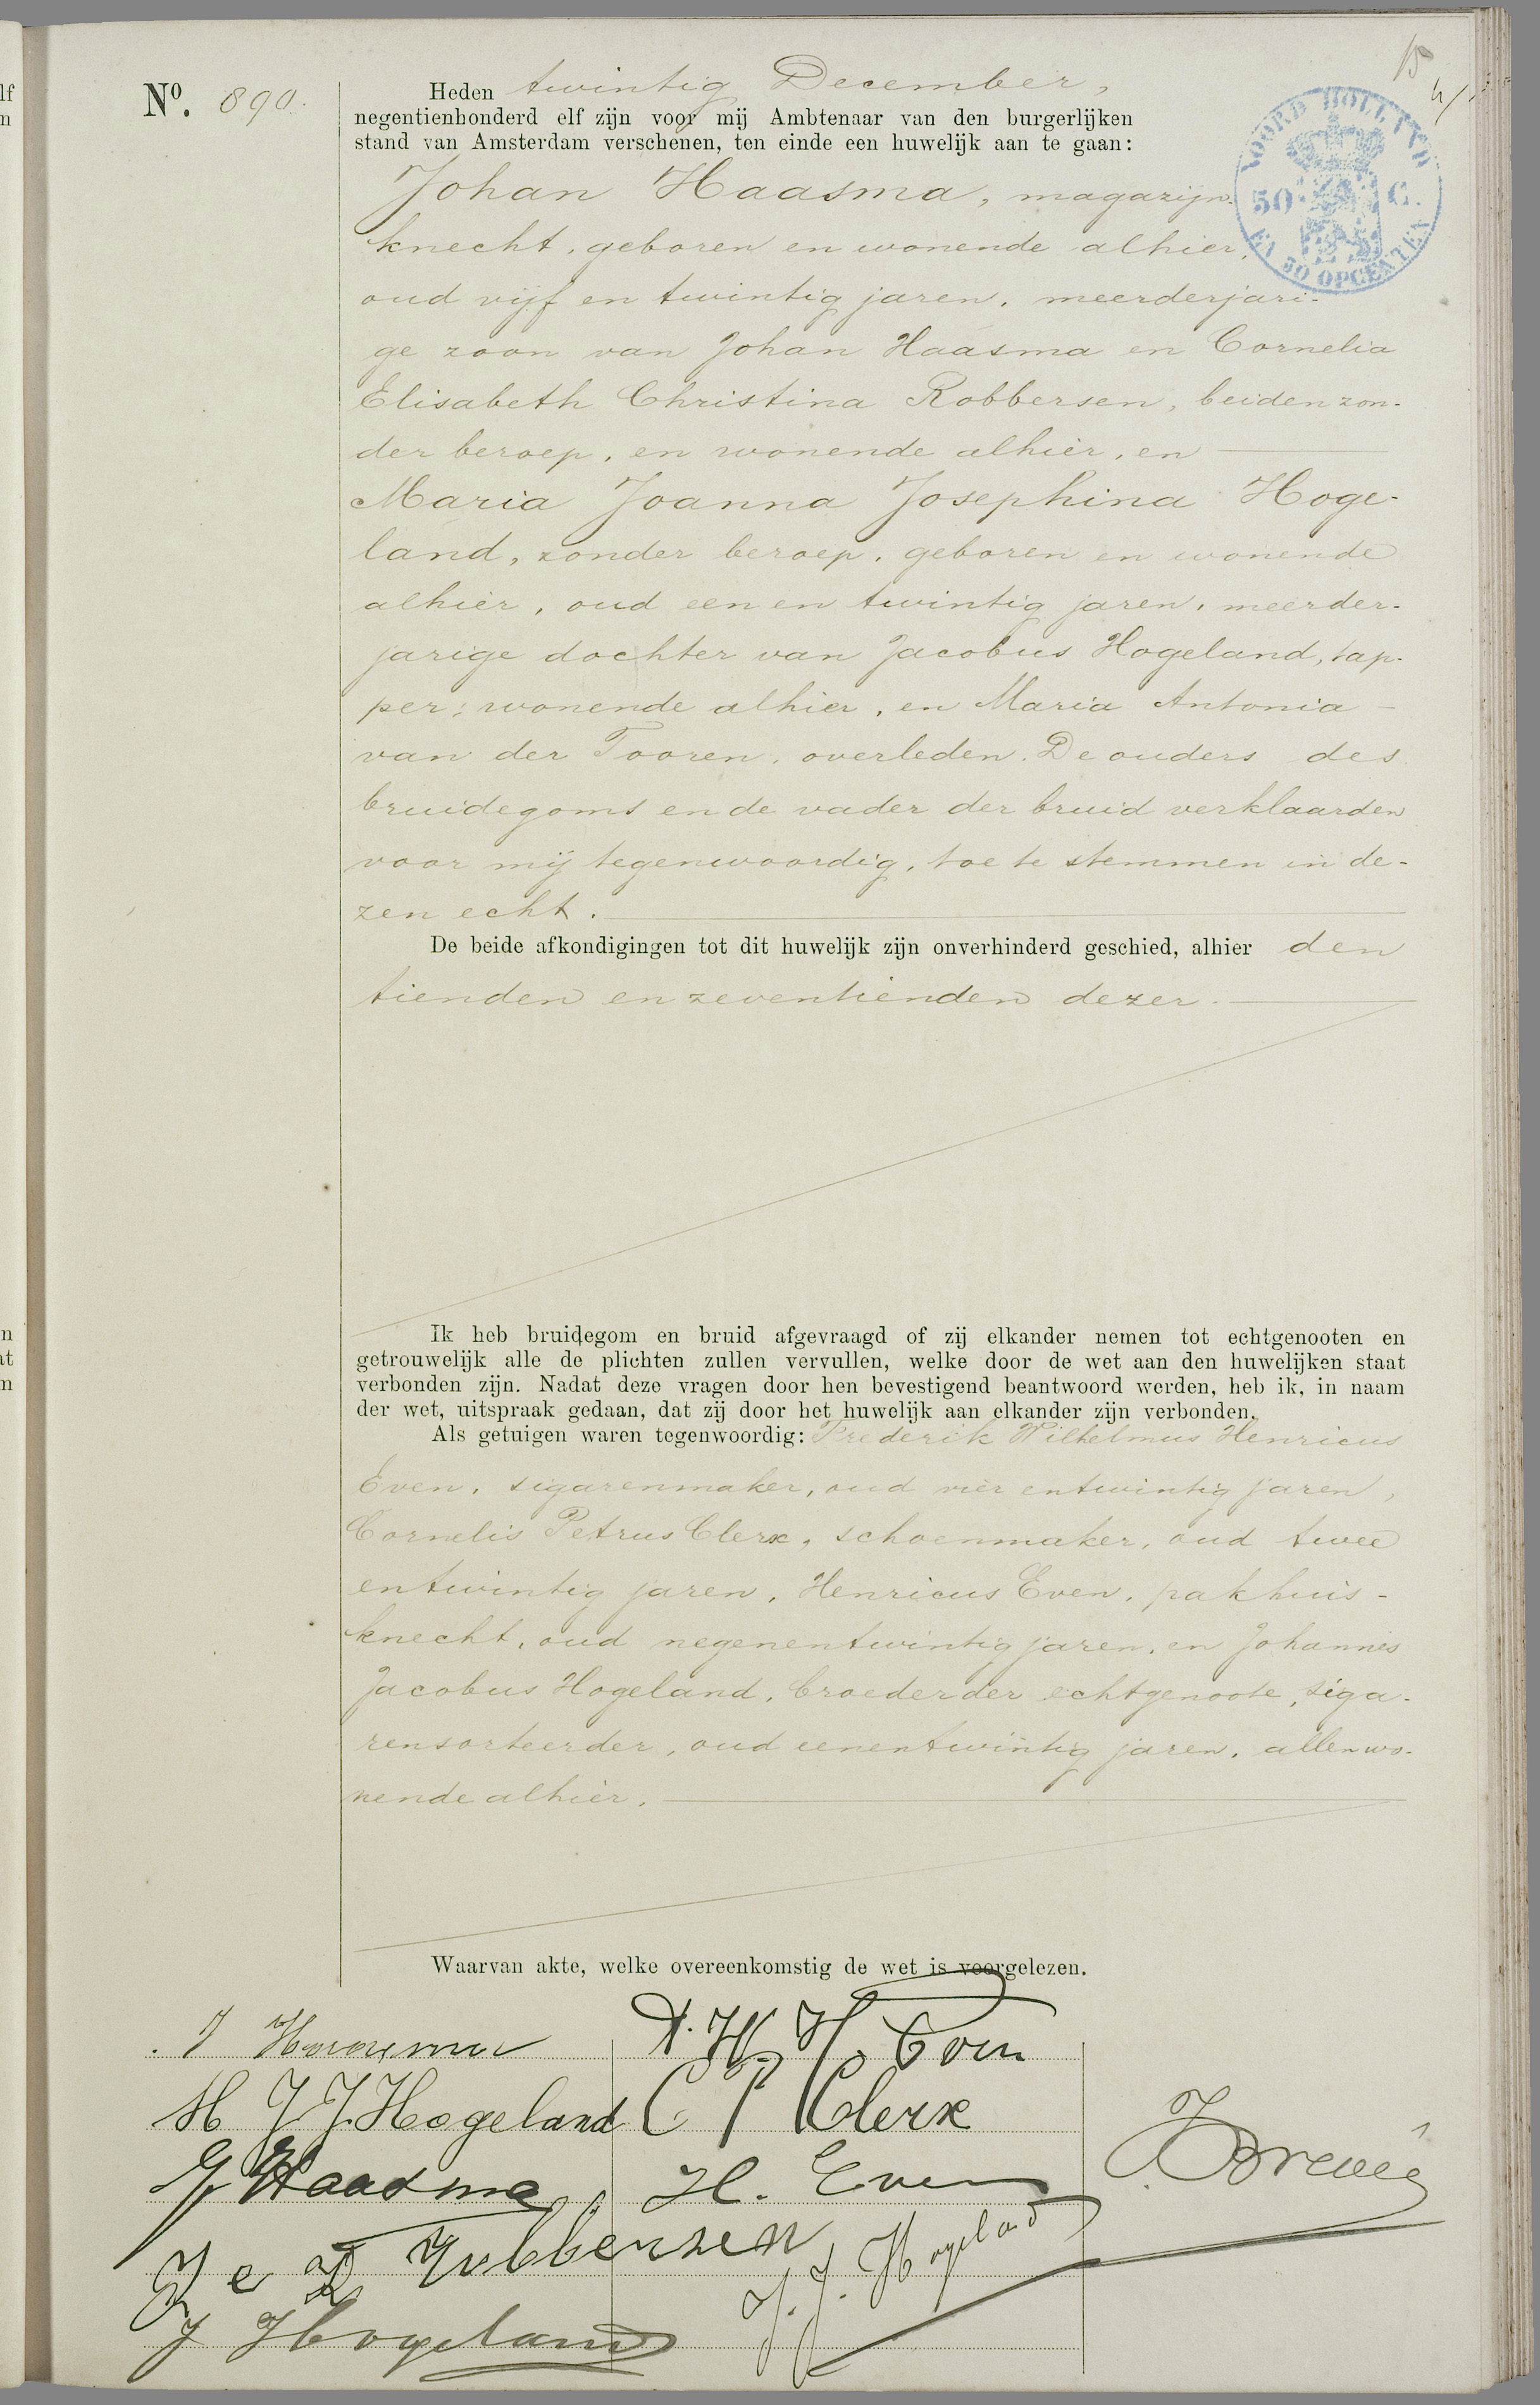 Nº. 890.
Heden twintig December,
negentienhonderd elf zijn voor mij Ambtenaar van den burgerlijken
stand van Amsterdam verschenen, ten einde een huwelijk aan te gaan:
Johan Haasma, magazijn-
knecht, geboren en wonende alhier,
oud vijf en twintig jaren, meerderjari-
ge zoon van Johan Haasma en Cornelia
Elisabeth Christina Robbersen, beiden zon-
der beroep, en wonende alhier, en
Maria Joanna Josephina Hoge-
land, zonder beroep, geboren en wonende
alhier, oud een en twintig jaren, meerder-
jarige dochter van Jacobus Hogeland, tap-
per, wonende alhier, en Maria Antonia
van der Tooren, overleden. De ouders des
bruidegoms en de vader der bruid verklaarden
voor mij tegenwoordig, toe te stemmen in de-
zen echt.
De beide afkondigingen tot dit huwelijk zijn onverhinderd geschied, alhier den
tienden en zeventienden dezer.
Ik heb bruidegom en bruid afgevraagd of zij elkander nemen tot echtgenooten en
getrouwelijk alle de plichten zullen vervullen, welke door de wet aan den huwelijken staat
verbonden zijn. Nadat deze vragen door hen bevestigend beantwoord werden, heb ik, in naam
der wet, uitspraak gedaan, dat zij door het huwelijk aan elkander zijn verbonden.
Als getuigen waren tegenwoordig: Frederik Wilhelmus Henricus
Even, sigarenmaker, oud vier entwintig jaren,
Cornelis Petrus Clerx, schoenmaker, oud twee
entwintig jaren, Henricus Even, pakhuis-
knecht, oud negenentwintig jaren, en Johannes
Jacobus Hogeland, broeder der echtgenoote, siga-
rensorteerder, oud eenentwintig jaren, allen wo-
nende alhier.
Waarvan akte, welke overeenkomstig de wet is voorgelezen.
J Haasma
F. W. H. Even
M J J Hogeland
C P Clerx
J Haasma
H. Even
Robbersen
J Hogeland
J. J. Hogeland
NOORD HOLLAND
50 C.
EN 50 OPCENTEN